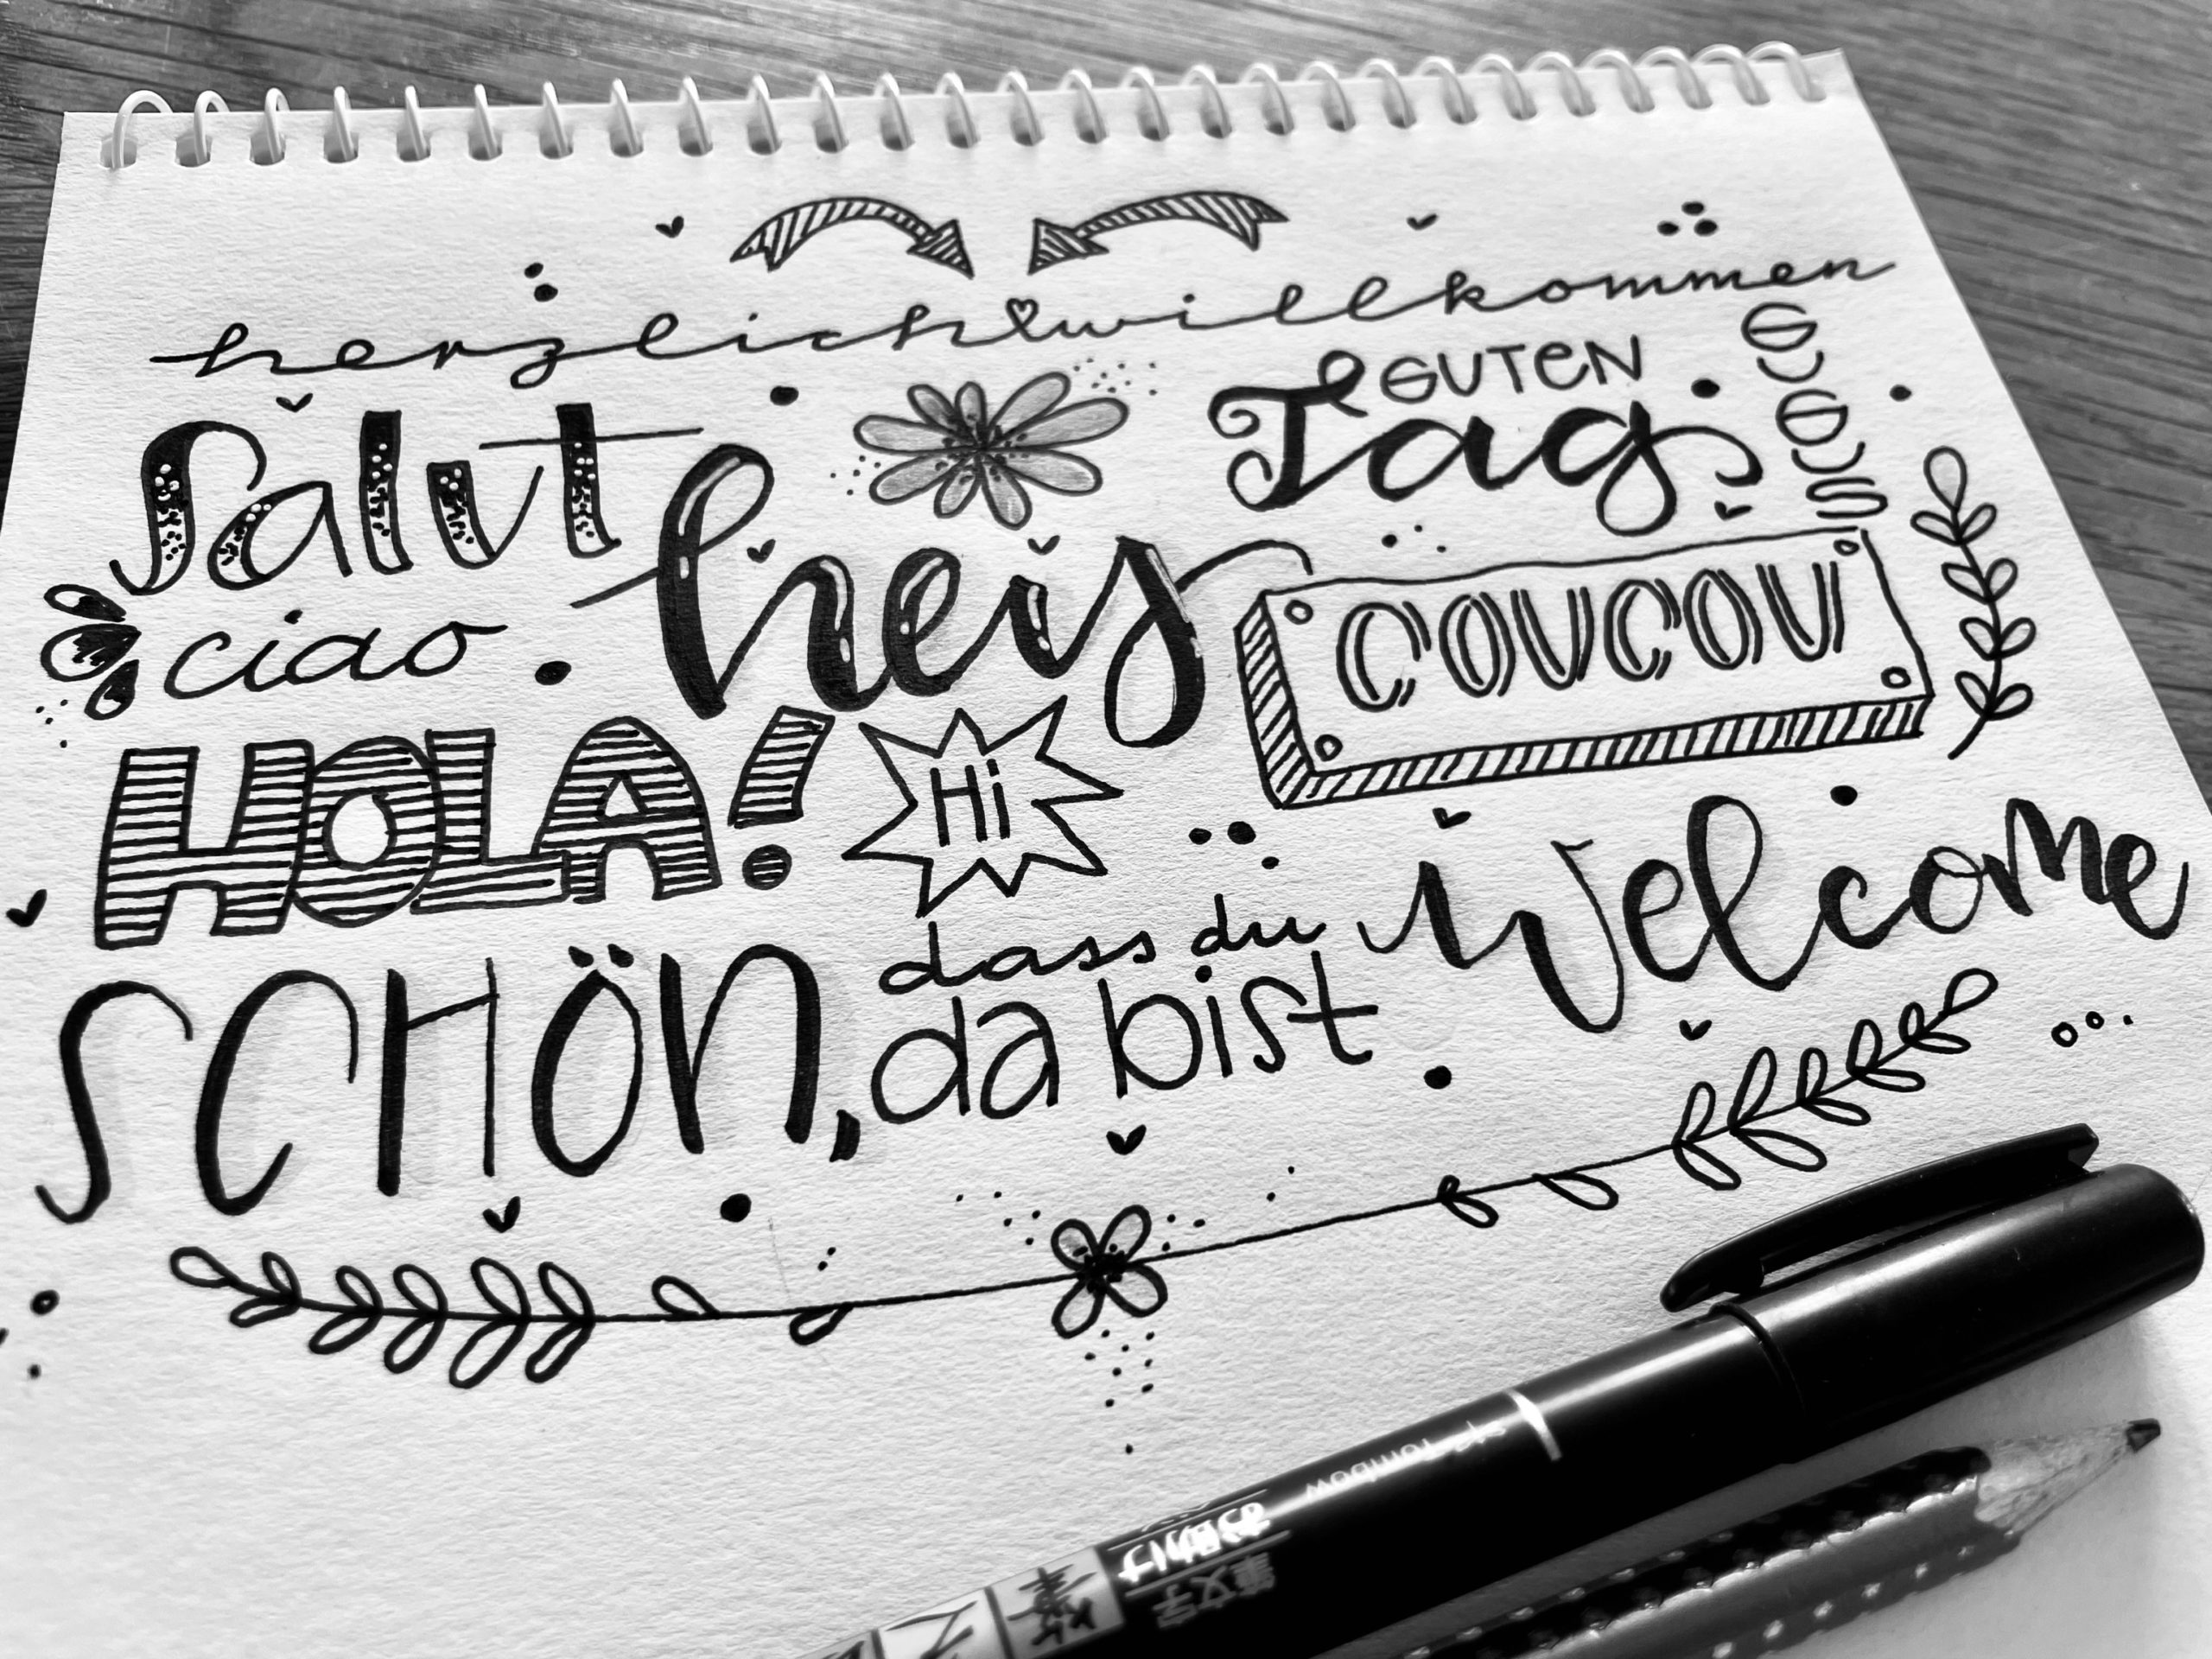 herzlich willkommen
GUTEN
Tag
GUGUS
Salut
heis
ciao
COUCOU
HOLA!
Hi
welcome
SCHÖN,
dass du
da bist
Tombow
筆文字